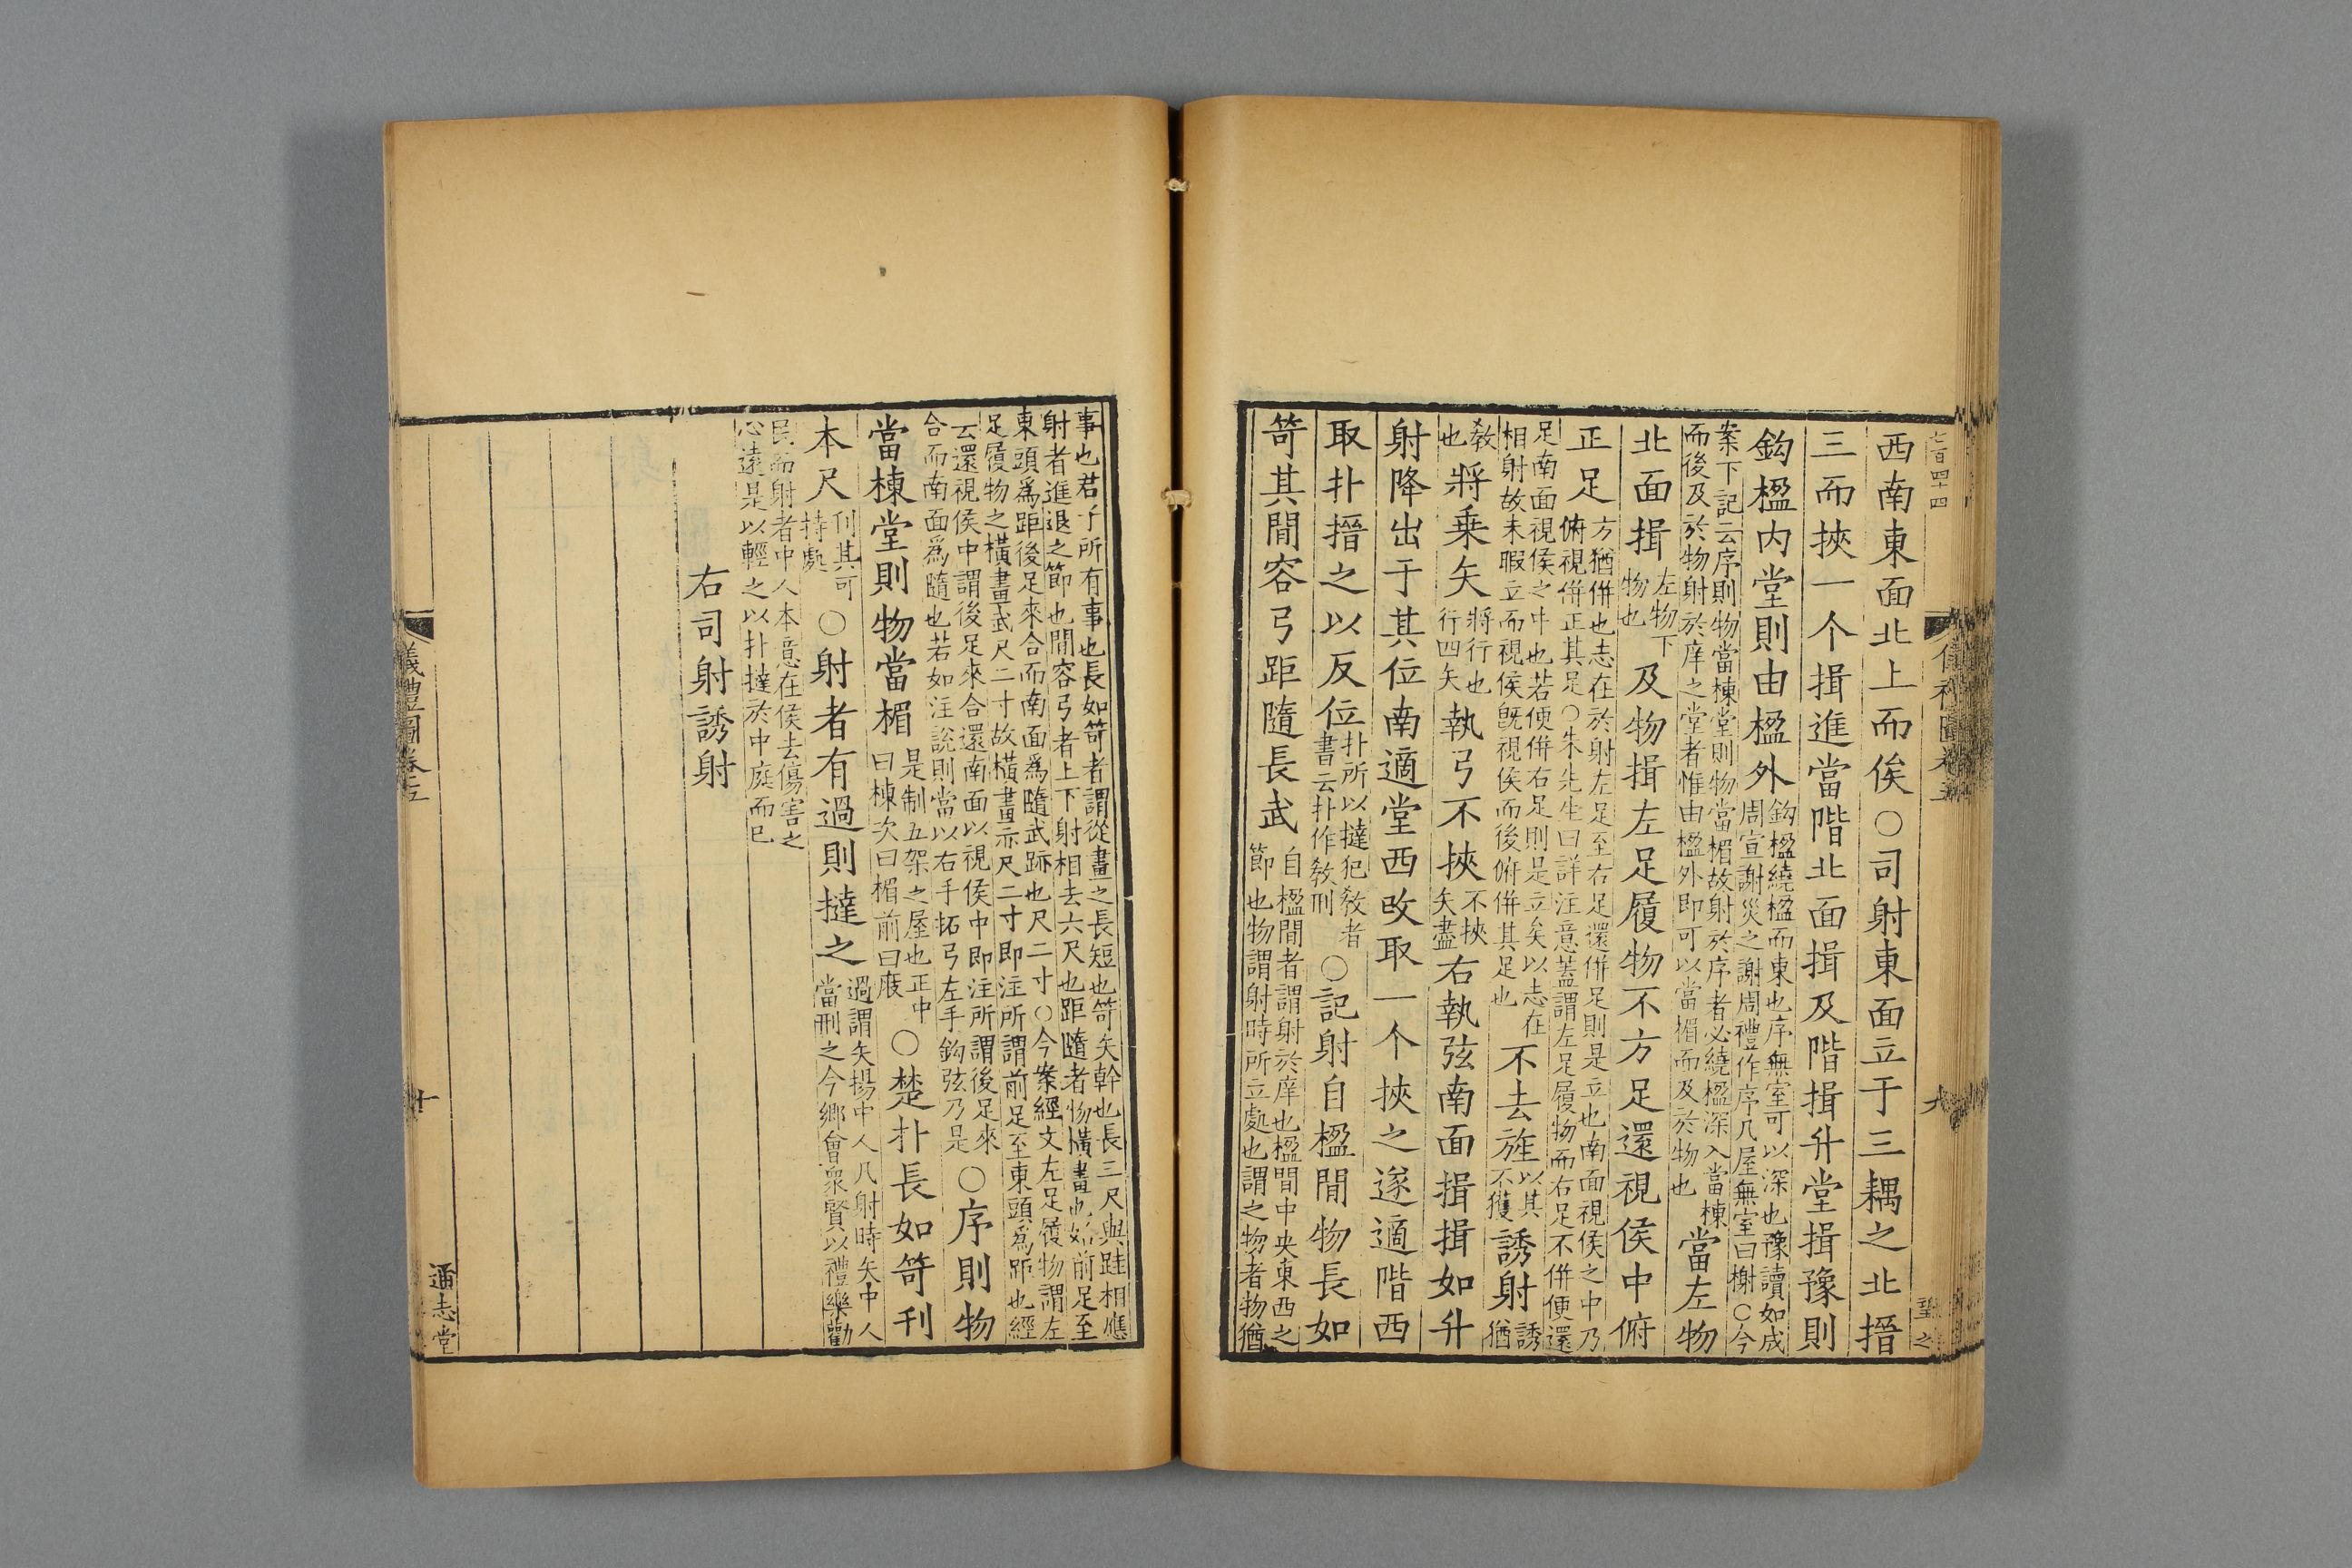 西南東面北上而俟○司射東面立于三耦之北搢
三而挾一个揖進當階北面揖及階揖升堂揖豫則
鉤楹内堂則由楹外鉤楹繞楹而東也序無室可以深也豫讀如成
周宣謝災之謝周禮作序凡屋無室曰榭○今
案下記云序則物當棟堂則物當楣故射於序者必繞楹深入當棟
而後及於物射於庠之堂者惟由楹外即可以當楣而及於物也
當左物
北面揖左物下
物也
及物揖左足履物不方足還視侯中俯
正足方猶併也志在於射左足至右足還併足則是立也南面視侯之中乃
俯視併正其足○朱先生曰詳注意蓋謂左足履物而右足不併便還
足南面視侯之中也若便併右足則是立矣以志在
相射故未暇立而視侯旣視侯而後俯併其足也
不去旌以其
不獲
誘射誘
猶
敎
也
將乗矢將行也
行四矢
執弓不挾不挾
矢盡
右執弦南面揖揖如升
射降出于其位南適堂西改取一个挾之遂適階西
取扑搢之以反位扑所以撻犯敎者
書云扑作敎刑
○記射自楹閒物長如
笴其閒容弓距隨長武自楹閒者謂射於庠也楹閒中央東西之
節也物謂射時所立處也謂之物者物猶
儀禮圖卷五
九
事也君子所有事也長如笴者謂從畫之長短也笴矢幹也長三尺與跬相應
射者進退之節也閒容弓者上下射相去六尺也距隨者物橫畫也始前足至
東頭爲距後足來合而南面爲隨武跡也尺二寸○今案經文左足履物謂左
足履物之橫畫武尺二寸故橫畫亦尺二寸即注所謂前足至東頭爲距也經
云還視侯中謂後足來合還南面以視侯中即注所謂後足來
合而南面爲隨也若如注說則當以右手拓弓左手鉤弦乃是
○序則物
當棟堂則物當楣是制五架之屋也正中
曰棟次曰楣前曰庪
○楚扑長如笴刊
本尺刊其可
持處
○射者有過則撻之過謂矢揚中人凡射時矢中人
當刑之今鄉會衆賢以禮樂勸
民而射者中人本意在侯去傷害之
心遠是以輕之以扑撻於中庭而已
右司射誘射
儀禮圖卷五
十
通志堂